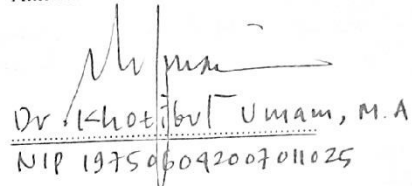 Dr. Khotibul Umam, M.A
NIP 197506042007011025